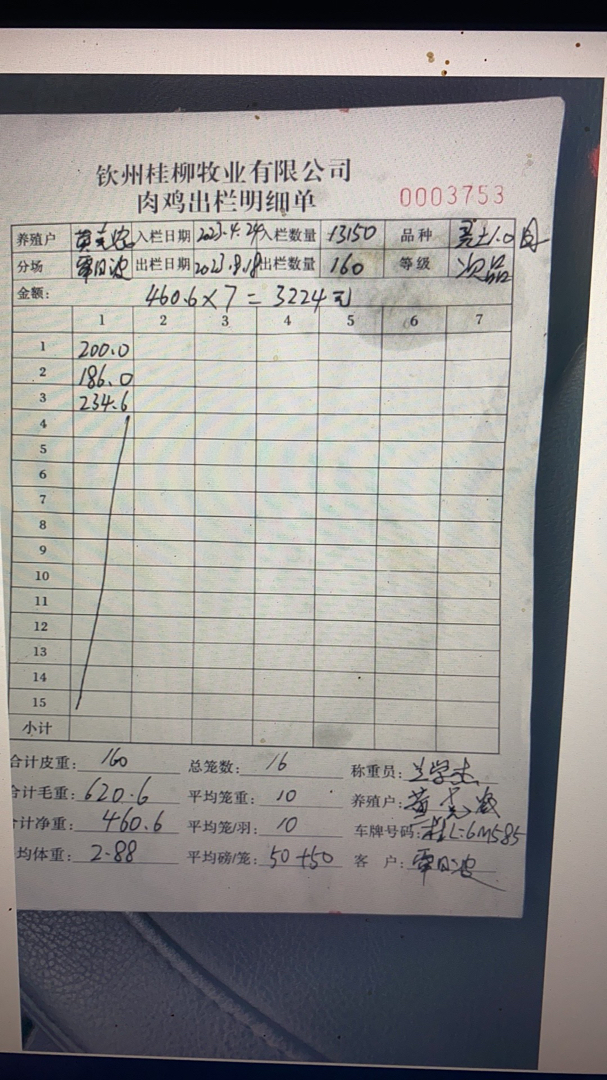 钦州桂柳牧业有限公司
肉鸡出栏明细单
0003753
养殖户 入栏日期 2023.4.24 入栏数量 13150 品种
分场 覃日波 出栏日期 2023.8.18 出栏数量 160 等级 次品
金额: 460.6×7=3224元
1 2 3 4 5 6 7
1 200.0
2 186.0
3 234.6
4
5
6
7
8
9
10
11
12
13
14
15
小计
合计皮重: 160 总笼数: 16 称重员:
合计毛重: 620.6 平均笼重: 10 养殖户: 黄
计净重: 460.6 平均笼/羽: 10 车牌号码: 桂L-6M585
均体重: 2.88 平均磅/笼: 50+50 客 户: 覃日波